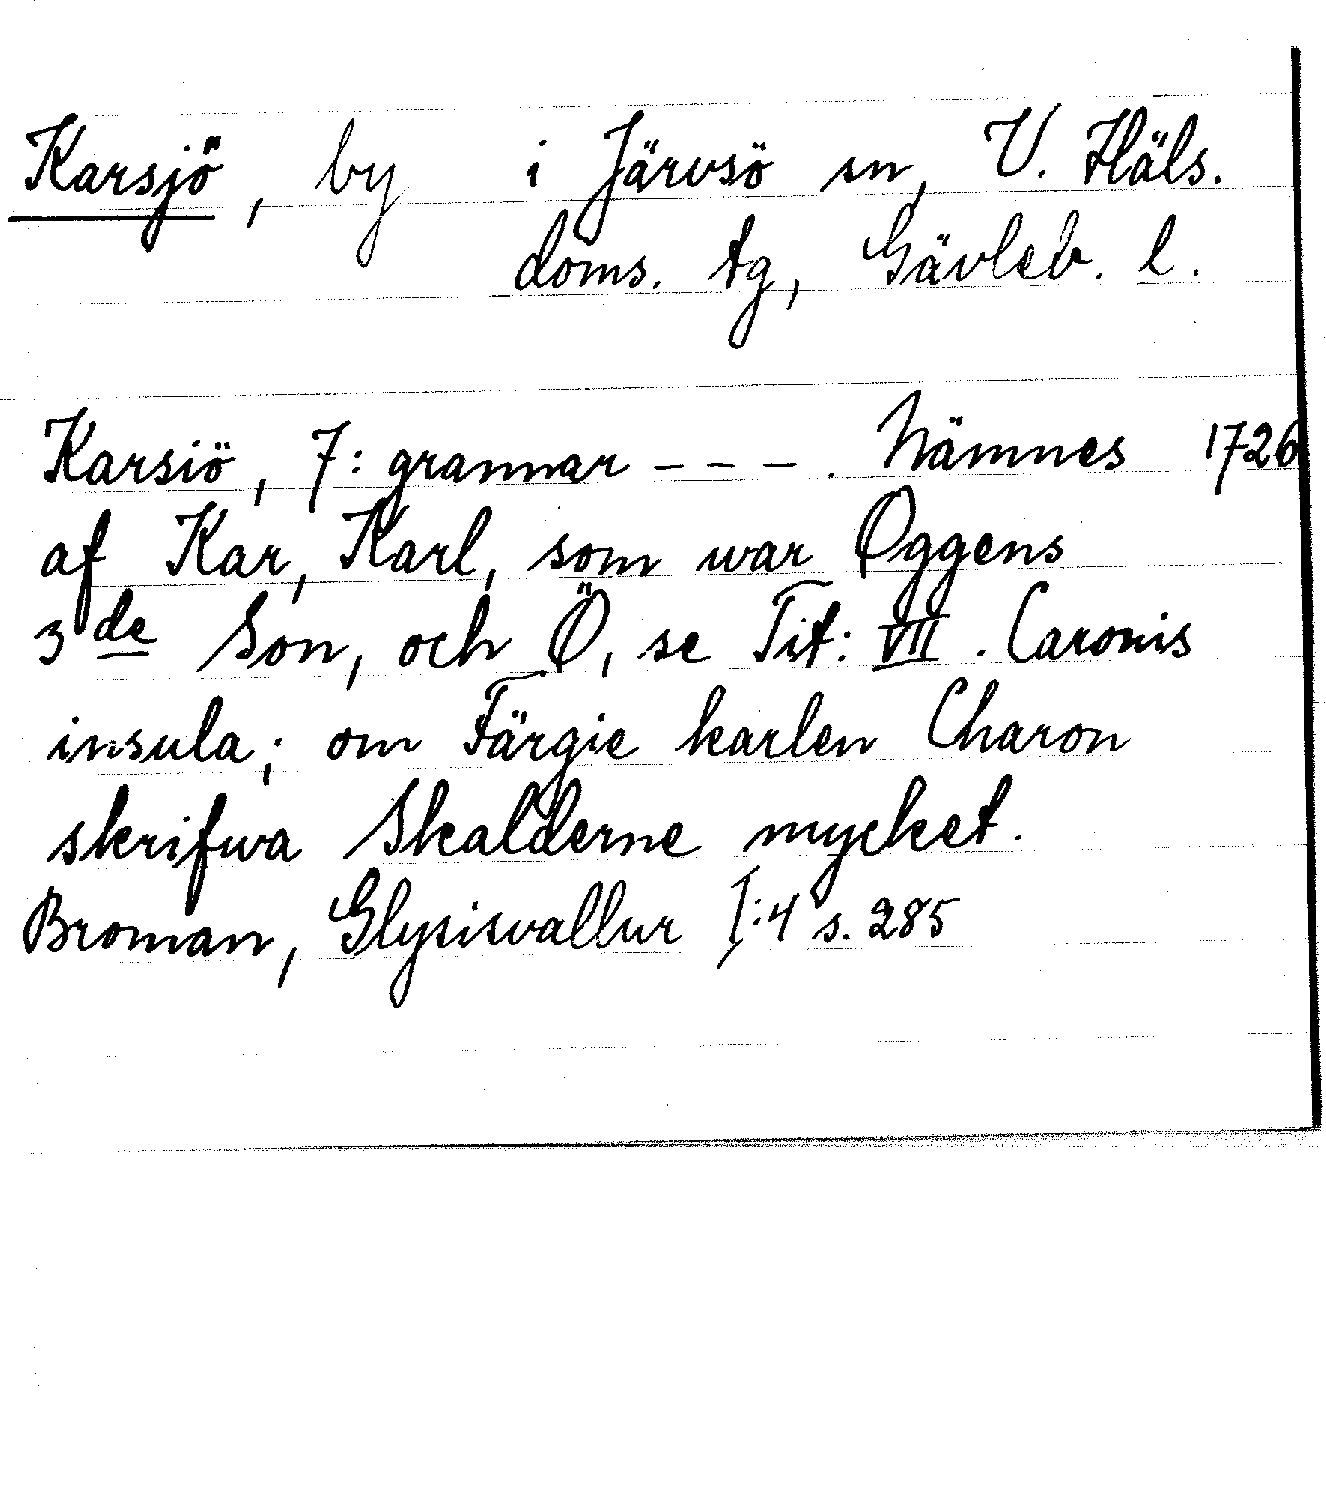 Karsjö, by i Järvsö sn, V. Häls.
doms. tg, Gävleb. l.
Karsiö, 7: grannar - - - . Nämnes 1726
af Kar, Karl, som war Oggens
3de Son, och Ö, se Tit: VII. Caronis
insula; om Färgie karlen Charon
skrifwa Skalderne mycket.
Broman, Glysisvallur I:4 s. 285